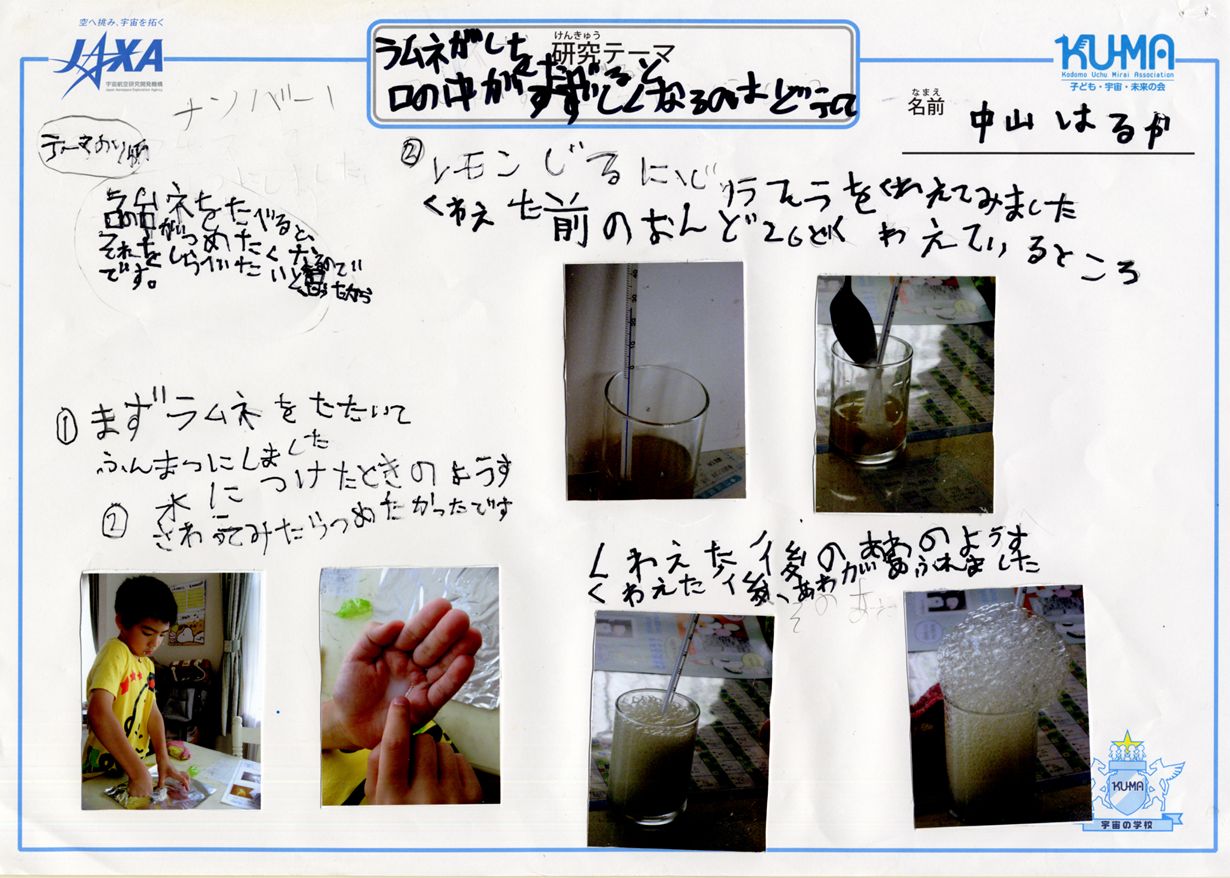 空へ挑み、宇宙を拓く
JAXA
宇宙航空研究開発機構
Japan Aerospace Exploration Agency
けんきゅう
研究テーマ
ラムネがしを
たべると
口の中がすずしくなるのはどうして
KU-MA
Kodomo Uchu Mirai Association
子ども・宇宙・未来の会
なまえ
名前
中山はるが
ナンバー1
テーマのり
ラムネをたべると、
口の中がつめたくなるので
それをしらべたいと思ったから
です。
① まずラムネをたたいて
ふんまつにしました
② 水につけたときのようす
さわってみたらつめたかったです
② レモンじるに
をくわえてみました
くわえた前のおんど26ど
くわえているところ
くわえた後のあわのようす
くわえた後、あわがあふれました
KU-MA
宇宙の学校